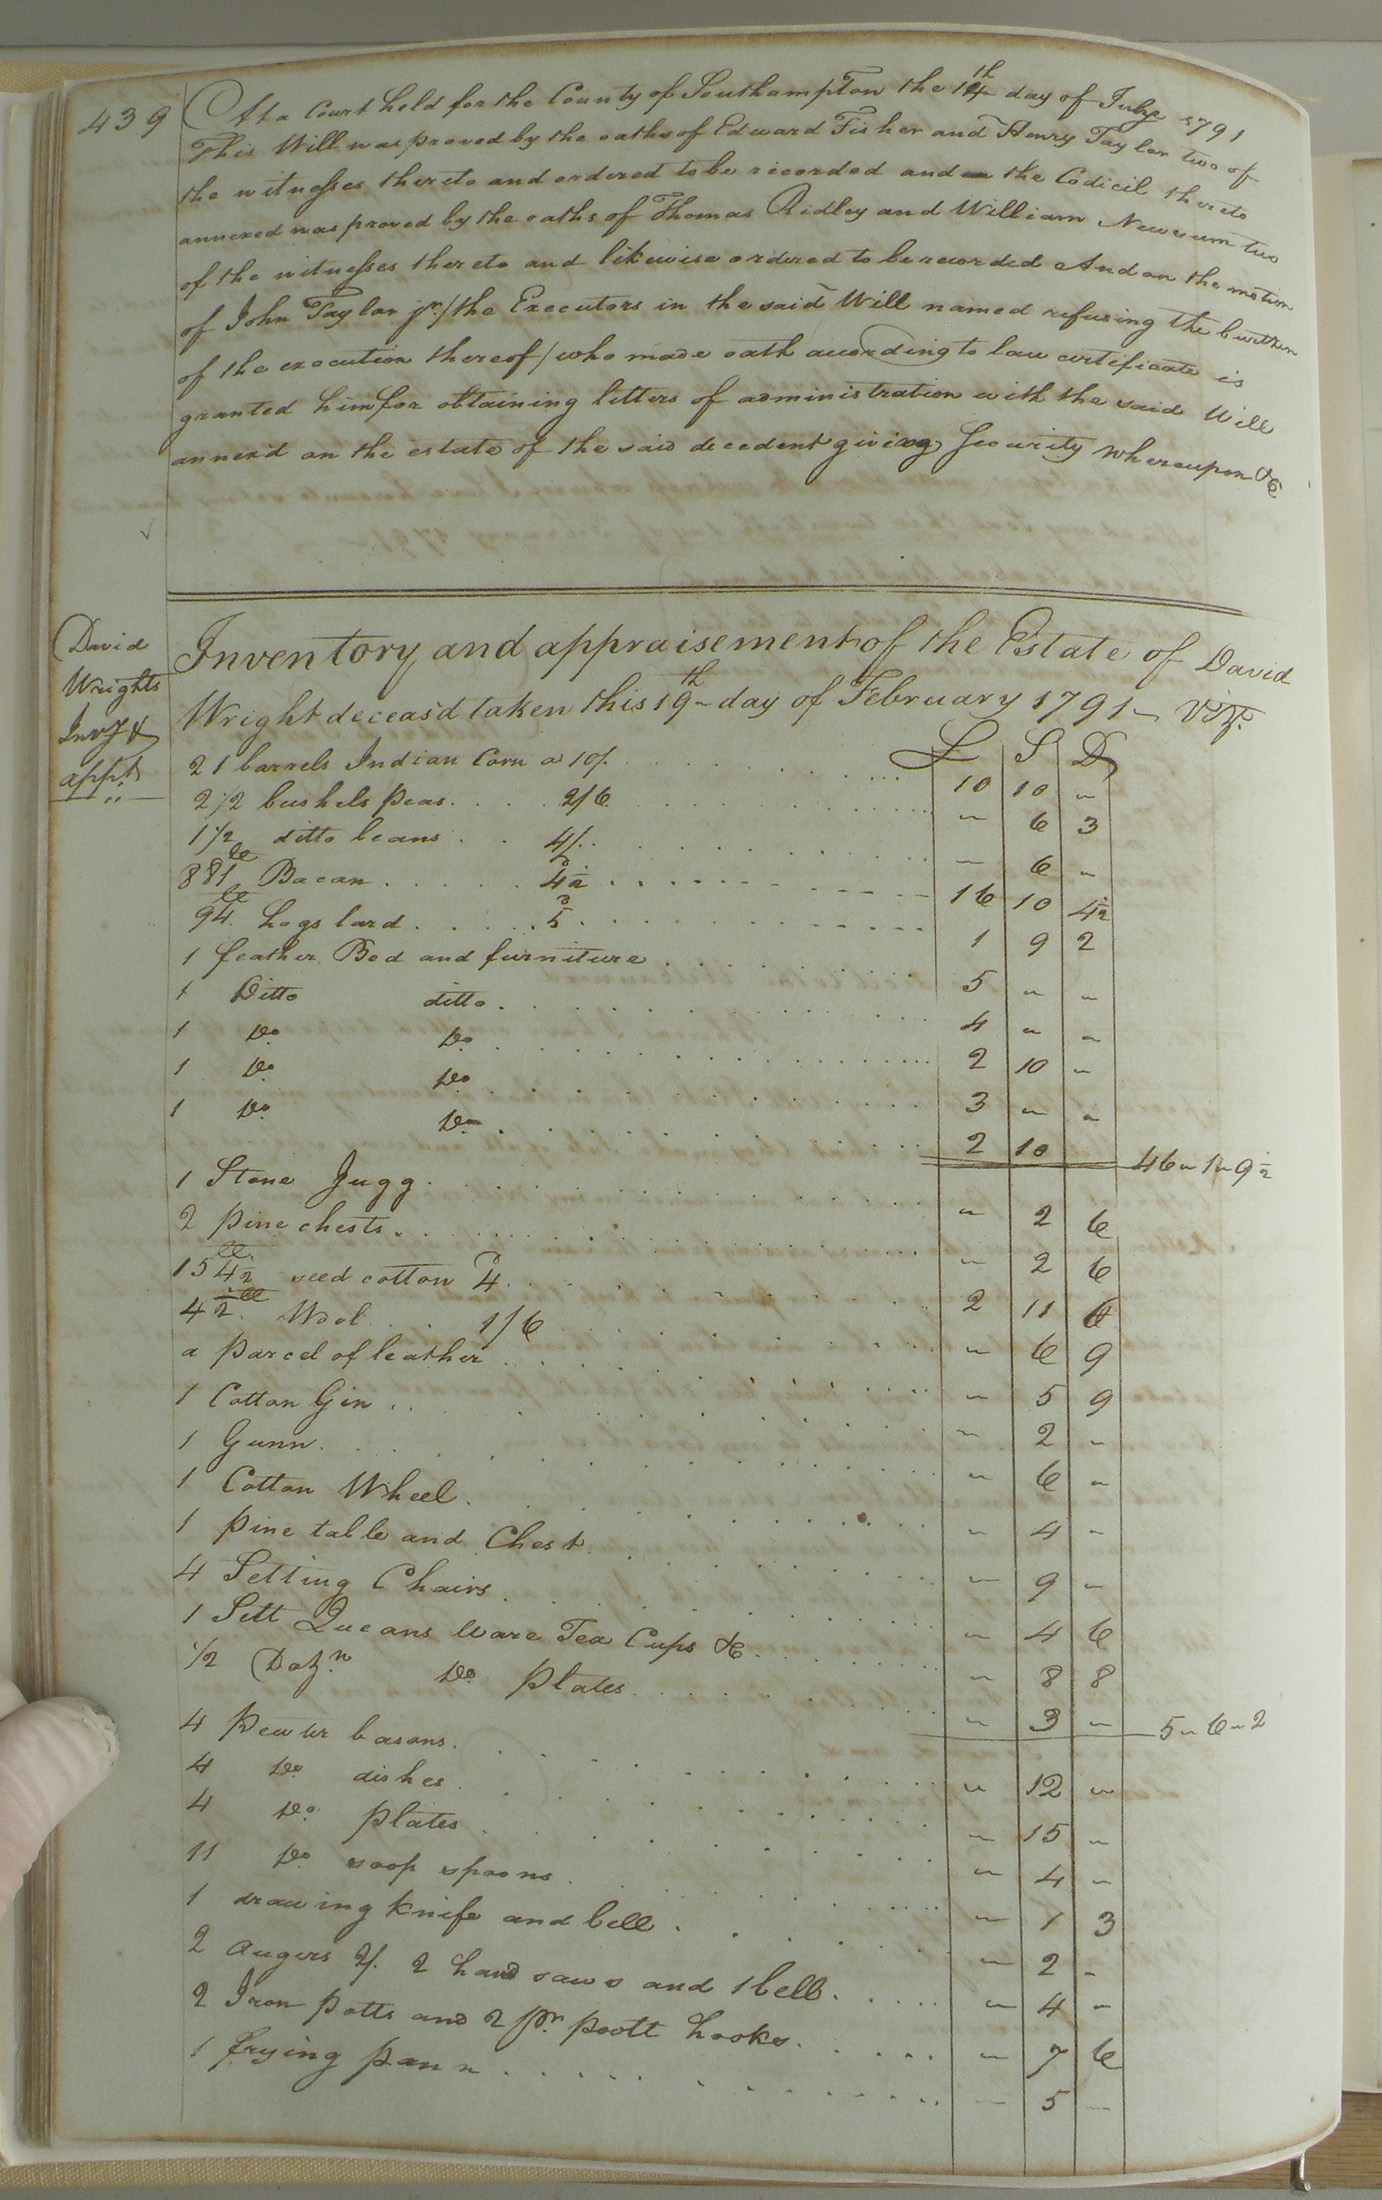 439
At a Court held for the County of Southampton the 14th day of July 1791
This Will was proved by the oaths of Edward Fisher and Henry Taylor two of
the witnesses thereto and ordered to be recorded and the Codicil thereto
annexed was proved by the oaths of Thomas Ridley and William Newsum two
of the witnesses thereto and likewise ordered to be recorded And on the motion
of John Taylor jr. / the Executors in the said Will named refusing the burthen
of the execution thereof / who made oath according to law certificate is
granted him for obtaining letters of administration with the said Will
annex'd on the estate of the said decedent giving Security whereupon &c
David
Wrights
Invy &
appt.
Inventory and appraisement of the Estate of David
Wright deceas'd taken this 19th day of February 1791 Vizt.
£ S D
21 barrels Indian Corn a 10/. 10 10 "
2 1/2 bushels peas 2/6 " 6 3
1 1/2 ditto beans 4/. " 6 "
881 lb Bacon 4 1/2d 16 10 4 1/2
94 lb hogs lard 5d 1 9 2
1 feather Bed and furniture 5 " "
1 Ditto ditto 4 " "
1 Do. Do. 2 10 "
1 Do. Do. 3 " "
1 Do. Do. 2 10
46 " 1 " 9 1/2
1 Stone Jugg " 2 6
2 pine chests " 2 6
15 4 1/2 lb seed cotton 4d 2 11 6
4 1/2 lb Wool 1/6 " 6 9
a parcel of leather " 5 9
1 Cotton Gin " 2 "
1 Gunn " 6 "
1 Cotton Wheel " 4 "
1 pine table and Chest " 9 "
4 Setting Chairs " 4 6
1 Sett Queans Ware Tea Cups &c " 8 8
1/2 Dozn. Do. plates " 3 "
5 " 6 " 2
4 pewter basons " 12 "
4 Do. dishes " 15 "
4 Do. plates " 4 "
11 Do. soop spoons " 1 3
1 drawing knife and bell " 2 "
2 augers 2/. 2 hand saws and 1 bell " 4 "
2 Iron potts and 2 pr. poott hooks " 7 6
1 frying pann " 5 "